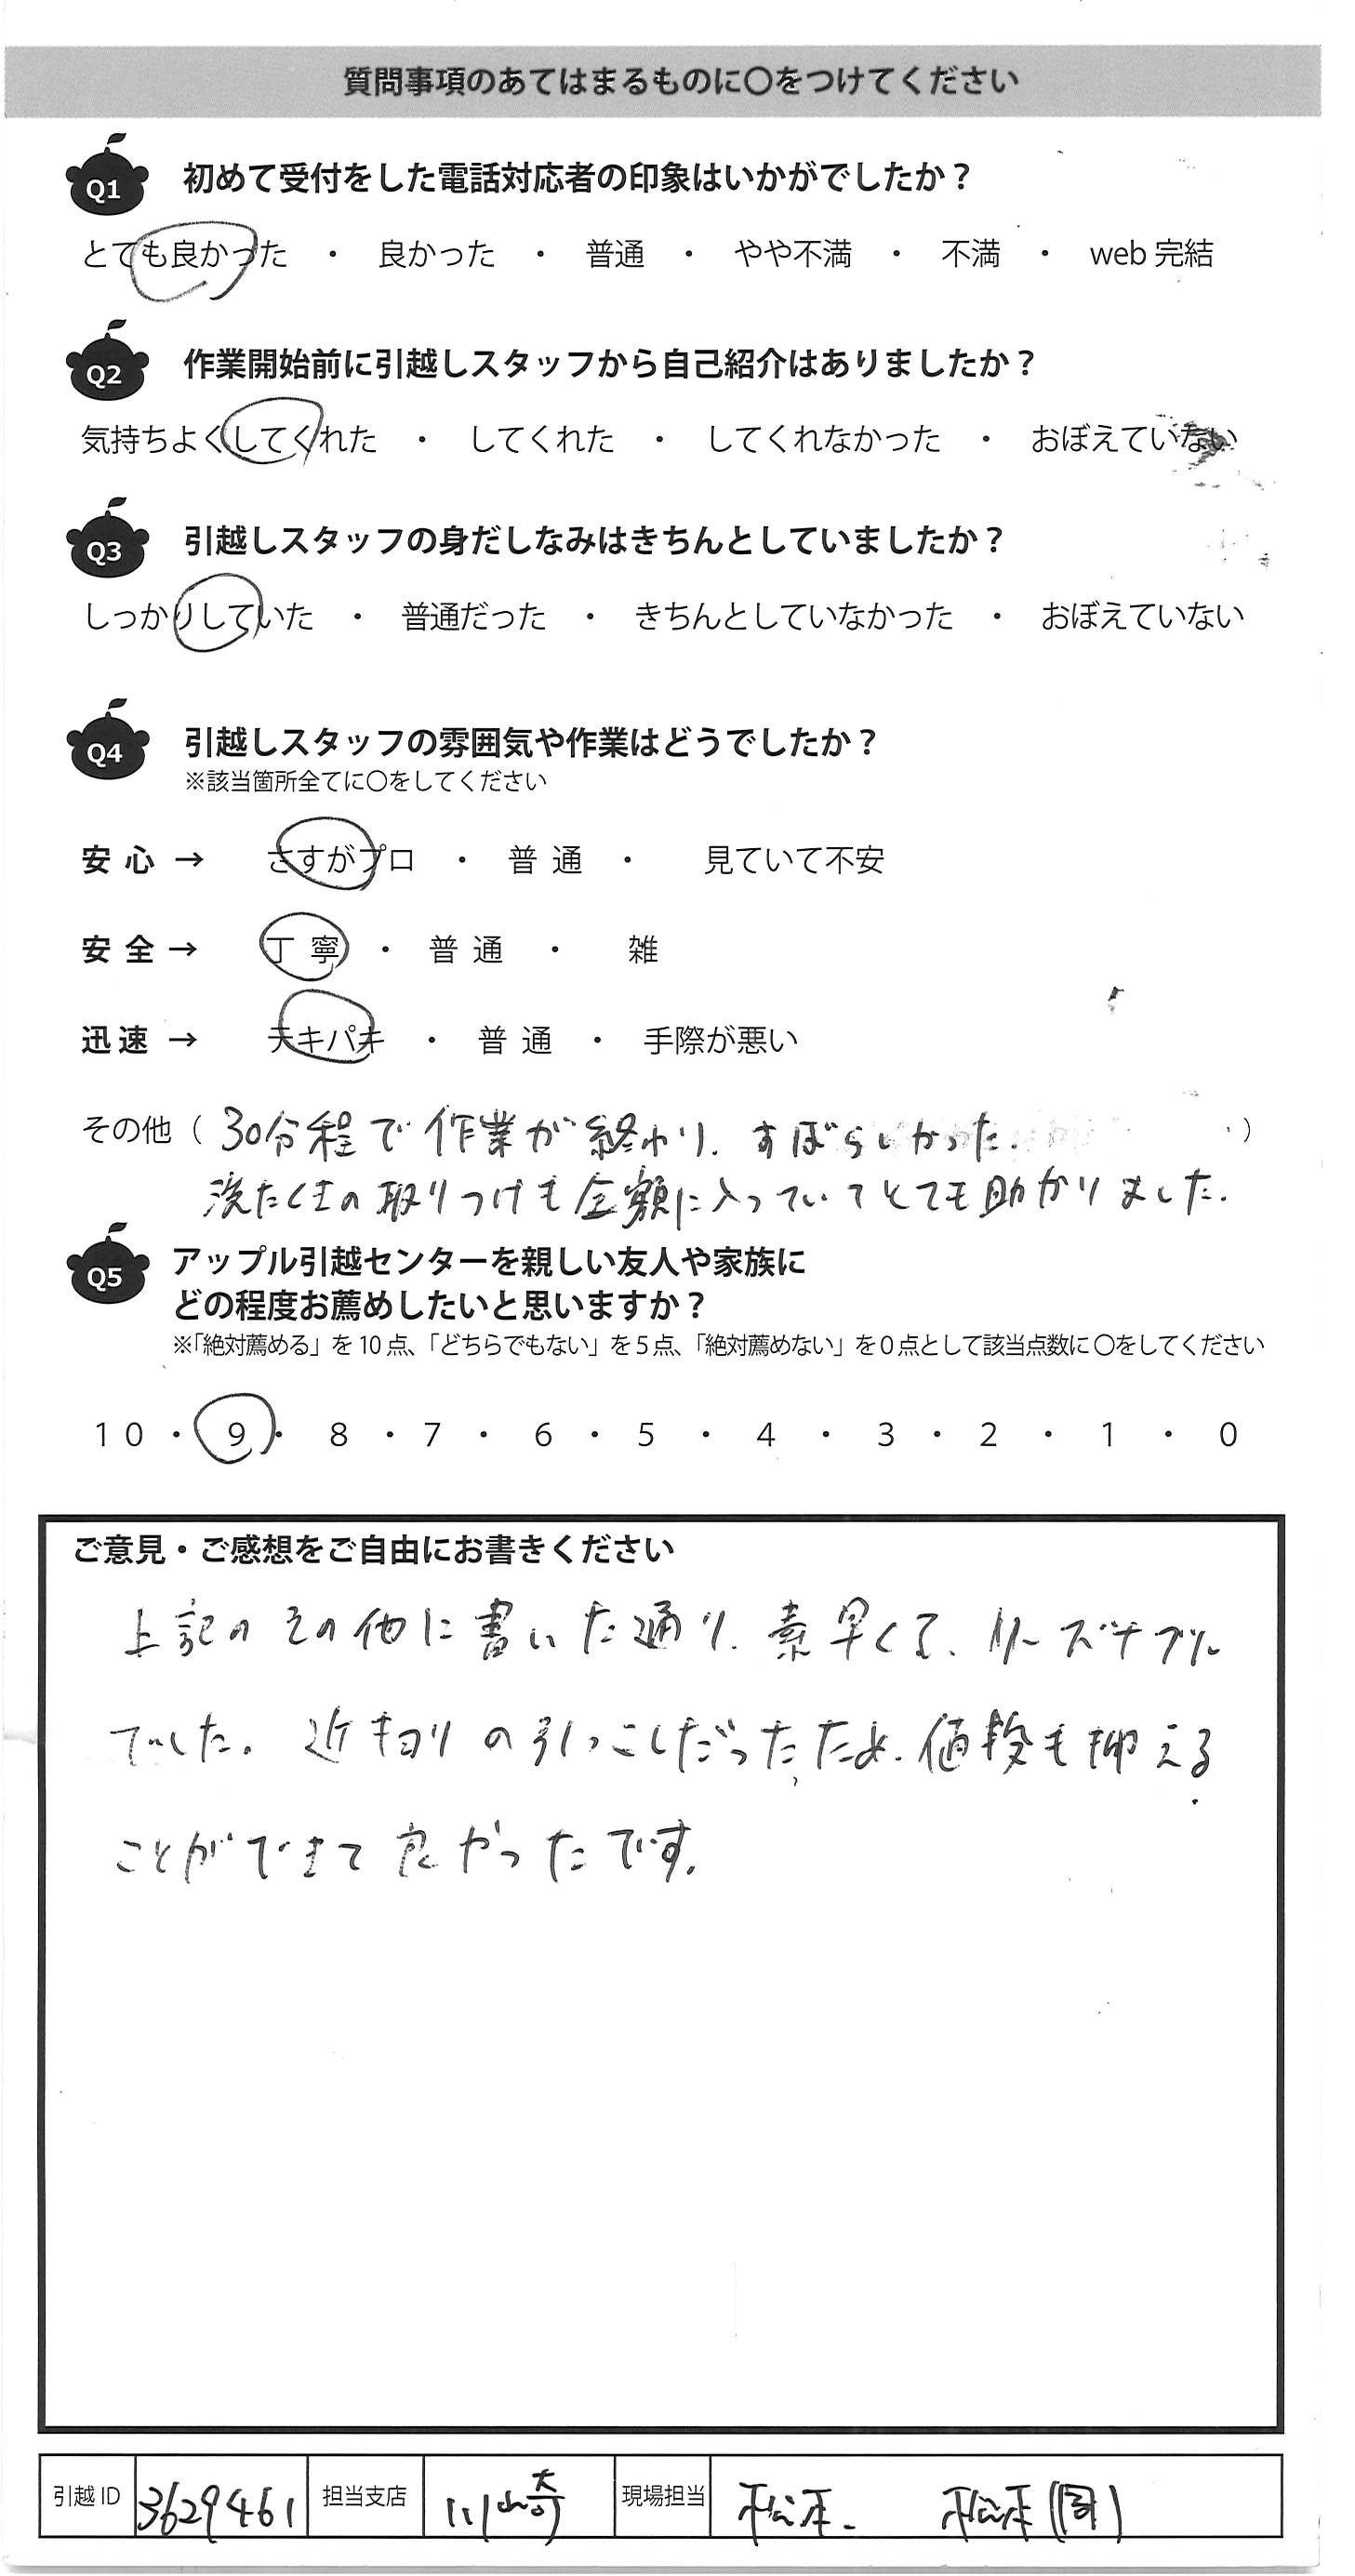 質問事項のあてはまるものに〇をつけてください
Q1 初めて受付をした電話対応者の印象はいかがでしたか？
とても良かった ・ 良かった ・ 普通 ・ やや不満 ・ 不満 ・ web 完結
Q2 作業開始前に引越しスタッフから自己紹介はありましたか？
気持ちよくしてくれた ・ してくれた ・ してくれなかった ・ おぼえていない
Q3 引越しスタッフの身だしなみはきちんとしていましたか？
しっかりしていた ・ 普通だった ・ きちんとしていなかった ・ おぼえていない
Q4 引越しスタッフの雰囲気や作業はどうでしたか？
※該当箇所全てに〇をしてください
安心 → さすがプロ ・ 普通 ・ 見ていて不安
安全 → 丁寧 ・ 普通 ・ 雑
迅速 → テキパキ ・ 普通 ・ 手際が悪い
その他（ 30分程で作業が終わり、すばらしかった. ）
洗たくきの取りつけも金額に入っていてとても助かりました.
Q5 アップル引越センターを親しい友人や家族に
どの程度お薦めしたいと思いますか？
※「絶対薦める」を10点、「どちらでもない」を5点、「絶対薦めない」を0点として該当点数に〇をしてください
10 ・ 9 ・ 8 ・ 7 ・ 6 ・ 5 ・ 4 ・ 3 ・ 2 ・ 1 ・ 0
ご意見・ご感想をご自由にお書きください
上記のその他に書いた通り、素早くて、リーズナブル
でした。近キョリの引っこしだったため、値段も抑える
ことができて良かったです.
引越ID 3629461 担当支店 川崎 現場担当 松本 松本